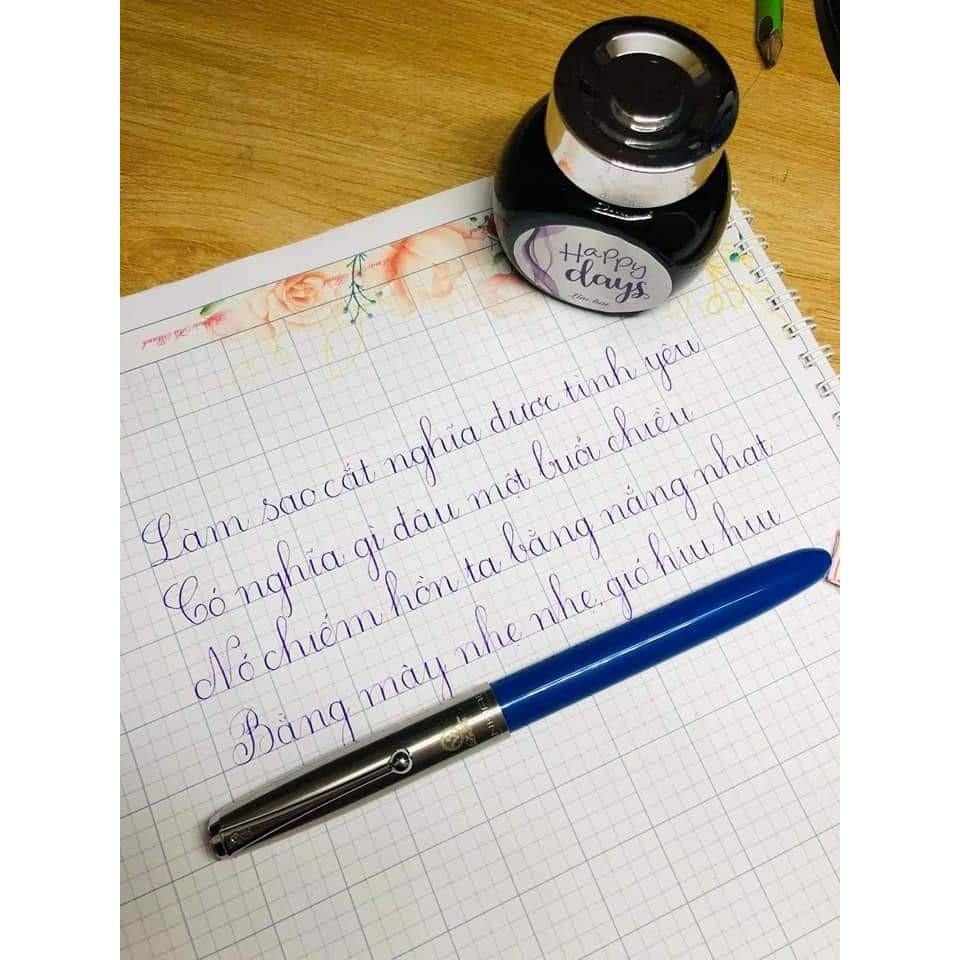 Happy
days
Tím hạt
Làm sao cắt nghĩa được tình yêu
Có nghĩa gì đâu một buổi chiều
Nó chiếm hồn ta bằng nắng nhạt
Bằng mây nhẹ nhẹ, gió hiu hiu